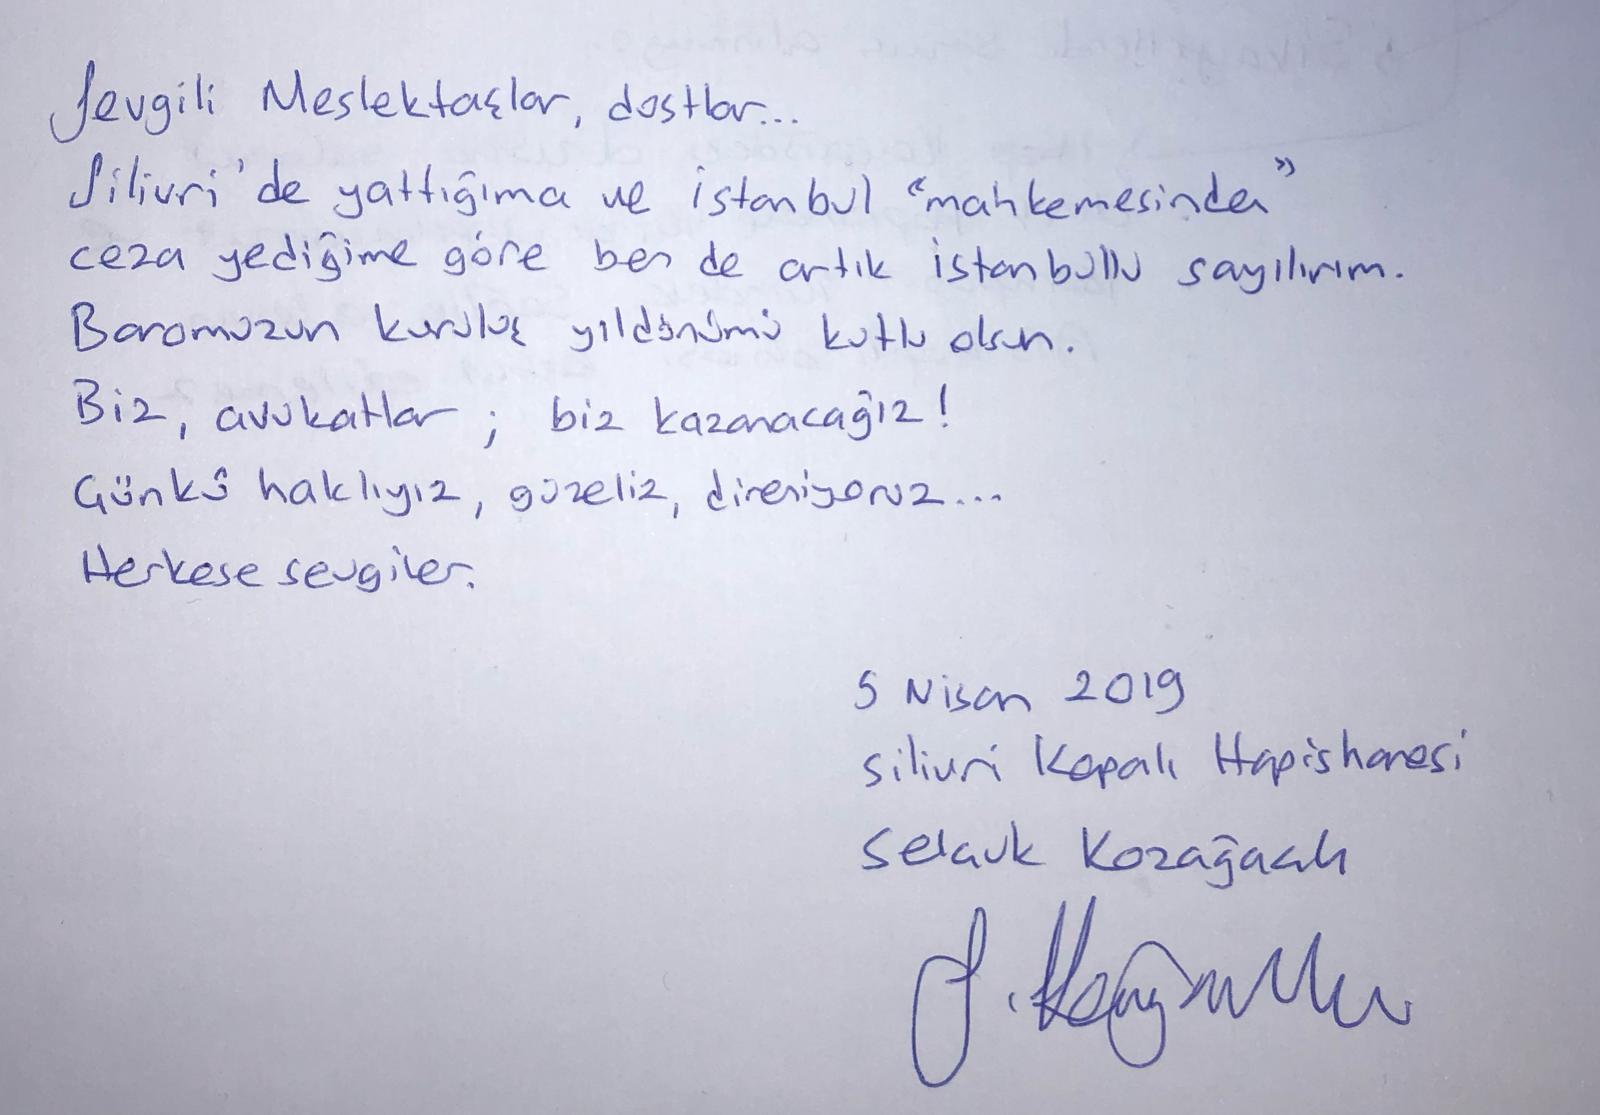 Sevgili Meslektaşlar, dostlar...
Silivri'de yattığıma ve istanbul "mahkemesinden"
ceza yediğime göre ben de artık istanbullu sayılırım.
Baromuzun kuruluş yıldönümü kutlu olsun.
Biz, avukatlar ; biz kazanacağız!
Çünkü haklıyız, güzeliz, direniyoruz...
Herkese sevgiler.
5 Nisan 2019
Silivri Kapalı Hapishanesi
Selçuk Kozağaçlı